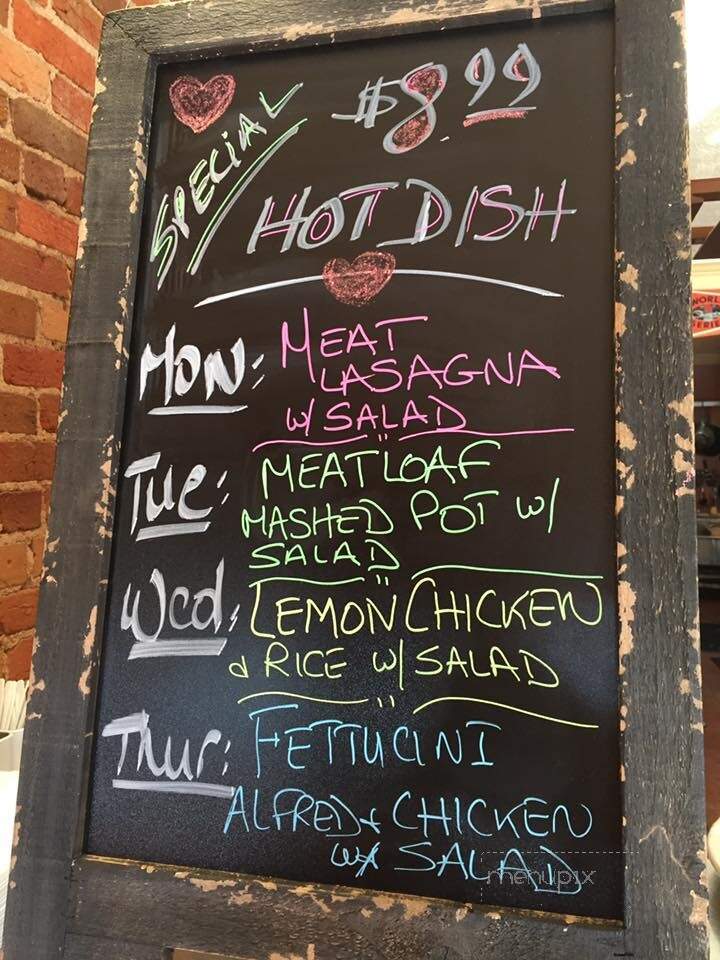 SPECIAL
$8.99
HOT DISH
MON: MEAT
LASAGNA
W/ SALAD
TUE: MEATLOAF
MASHED POT W/
SALAD
Wed: LEMON CHICKEN
& RICE W/ SALAD
Thur: FETTUCINI
ALFRED+ CHICKEN
W/ SALAD
menupix